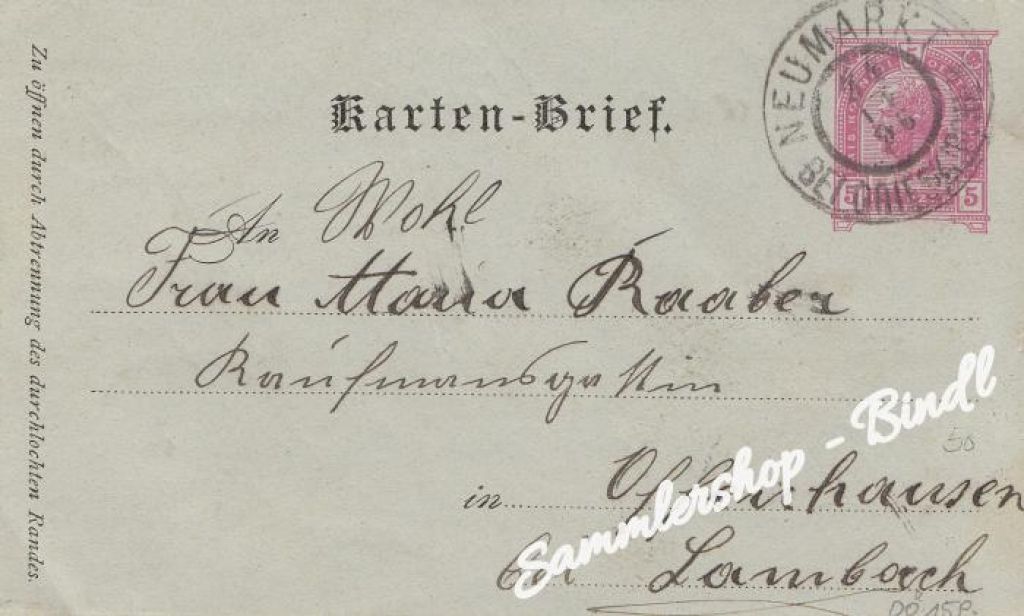 Karten-Brief.
NEUMARKT
96
5 5
An Wohl
Frau Maria Raaber
Kaufmansgattin
in Offenhausen
bei Lambach
50
Zu öffnen durch Abtrennung des durchlochten Randes.
Sammlershop - Bindl